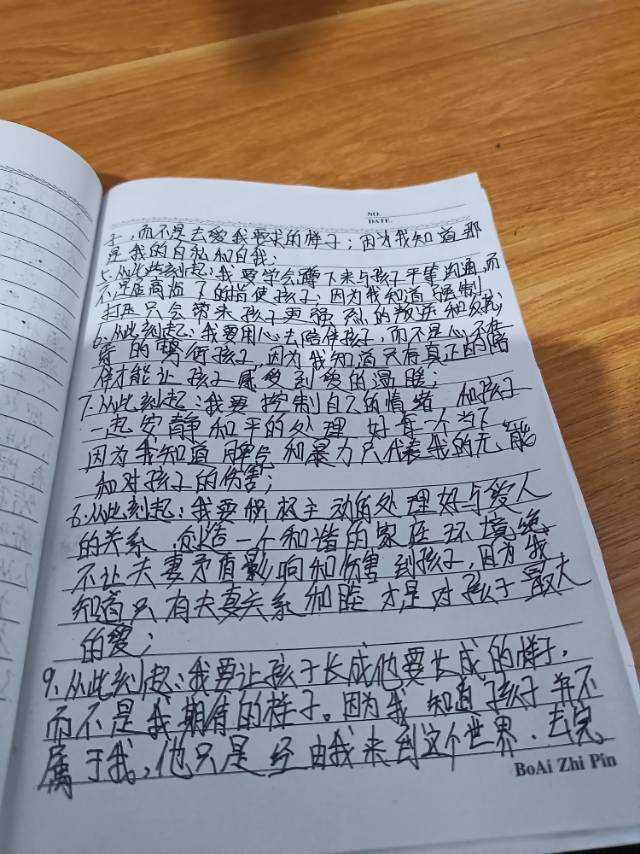 NO.
DATE
子，而不是去爱我要求的样子；因为我知道那
是我的自私和自我；
5.从此刻起：我要学会蹲下来与孩子平等沟通，而
不是居高临下的指使孩子；因为我知道强制
打压只会带来孩子更强烈的叛逆和反抗；
6.从此刻起：我要用心去陪伴孩子，而不是心不在
焉的敷衍孩子，因为我知道只有真正的陪
伴才能让孩子感受到爱的温暖；
7.从此刻起：我要控制自己的情绪 和孩子
一起安静和平的处理好每一个当下
因为我知道 和暴力只代表我的无能
和对孩子的伤害；
8.从此刻起：我要积极主动的处理好与爱人
的关系，创造一个和谐的家庭环境绝
不让夫妻矛盾影响和伤害到孩子，因为我
知道只有夫妻关系和睦才是对孩子最大
的爱；
9.从此刻起：我要让孩子长成他要长成的样子，
而不是我期待的样子。因为我知道孩子并不
属于我，他只是经由我来到这个世界.去完
BoAi Zhi Pin